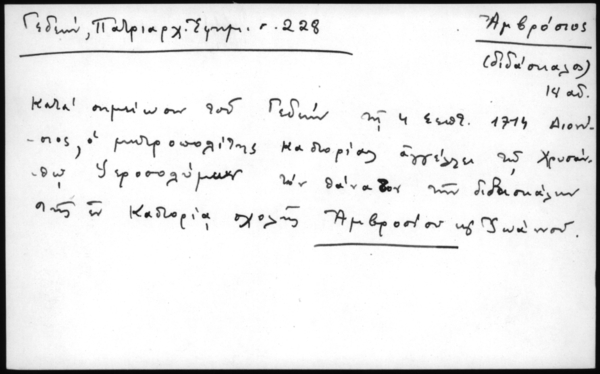 Γεδεών, Πατριαρχ. Εφημ. σ. 228
Ἀμβρόσιος
(διδάσκαλος)
18 αἰ.
Κατά σημείωσιν τοῦ Γεδεών τῇ 4 Σεπτ. 1714 Διονύ-
-σιος, ὁ μητροπολίτης Καστορίας ἀγγέλλει τῷ Χρυσάν-
-θῳ Ἱεροσολύμων τόν θάνατον τῶν διδασκάλων
τῆς ἐν Καστορίᾳ σχολῆς Ἀμβροσίου κ' Ἰωάννου.